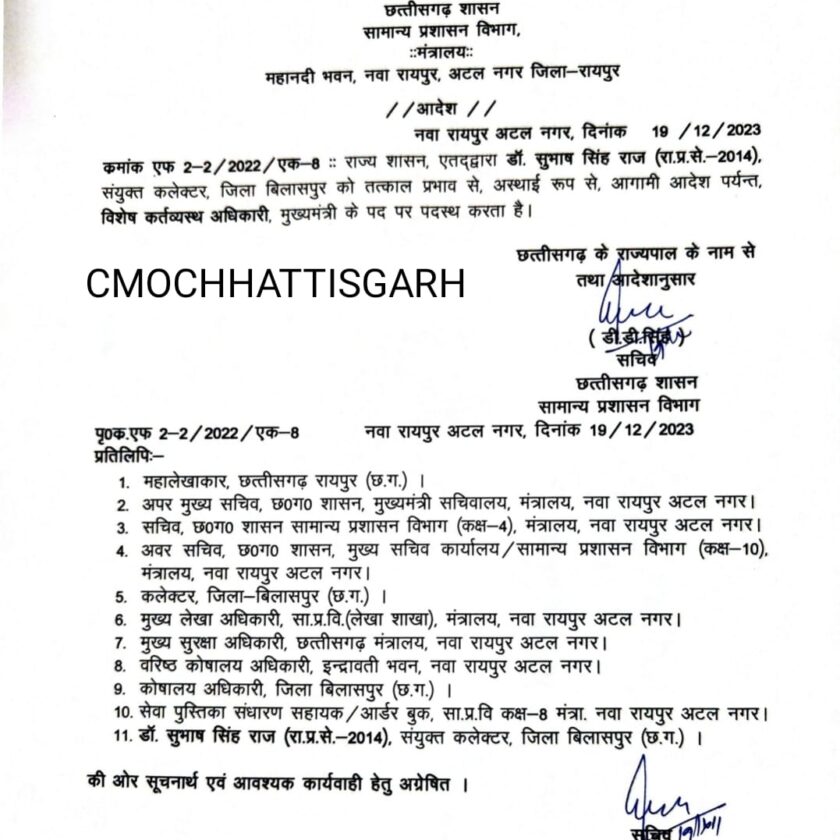 छत्तीसगढ़ शासन
सामान्य प्रशासन विभाग,
::मंत्रालय::
महानदी भवन, नवा रायपुर, अटल नगर जिला–रायपुर
//आदेश //
नवा रायपुर अटल नगर, दिनांक 19 /12/2023
क्रमांक एफ 2–2/2022/एक–8 :: राज्य शासन, एतद्द्वारा डॉ. सुभाष सिंह राज (रा.प्र.से.–2014),
संयुक्त कलेक्टर, जिला बिलासपुर को तत्काल प्रभाव से, अस्थाई रूप से, आगामी आदेश पर्यन्त,
विशेष कर्तव्यस्थ अधिकारी, मुख्यमंत्री के पद पर पदस्थ करता है।
छत्तीसगढ़ के राज्यपाल के नाम से
तथा आदेशानुसार
CMOCHHATTISGARH
( डी.डी.सिंह )
सचिव
छत्तीसगढ़ शासन
सामान्य प्रशासन विभाग
पृ0क्र.एफ 2–2/2022/एक–8 नवा रायपुर अटल नगर, दिनांक 19/12/2023
प्रतिलिपिः–
1. महालेखाकार, छत्तीसगढ़ रायपुर (छ.ग.) ।
2. अपर मुख्य सचिव, छ0ग0 शासन, मुख्यमंत्री सचिवालय, मंत्रालय, नवा रायपुर अटल नगर।
3. सचिव, छ0ग0 शासन सामान्य प्रशासन विभाग (कक्ष–4), मंत्रालय, नवा रायपुर अटल नगर।
4. अवर सचिव, छ0ग0 शासन, मुख्य सचिव कार्यालय/सामान्य प्रशासन विभाग (कक्ष–10),
मंत्रालय, नवा रायपुर अटल नगर।
5. कलेक्टर, जिला–बिलासपुर (छ.ग.) ।
6. मुख्य लेखा अधिकारी, सा.प्र.वि.(लेखा शाखा), मंत्रालय, नवा रायपुर अटल नगर।
7. मुख्य सुरक्षा अधिकारी, छत्तीसगढ़ मंत्रालय, नवा रायपुर अटल नगर।
8. वरिष्ठ कोषालय अधिकारी, इन्द्रावती भवन, नवा रायपुर अटल नगर।
9. कोषालय अधिकारी, जिला बिलासपुर (छ.ग.) ।
10. सेवा पुस्तिका संधारण सहायक/आर्डर बुक, सा.प्र.वि कक्ष–8 मंत्रा. नवा रायपुर अटल नगर।
11. डॉ. सुभाष सिंह राज (रा.प्र.से.–2014), संयुक्त कलेक्टर, जिला बिलासपुर (छ.ग.) ।
की ओर सूचनार्थ एवं आवश्यक कार्यवाही हेतु अग्रेषित ।
सचिव